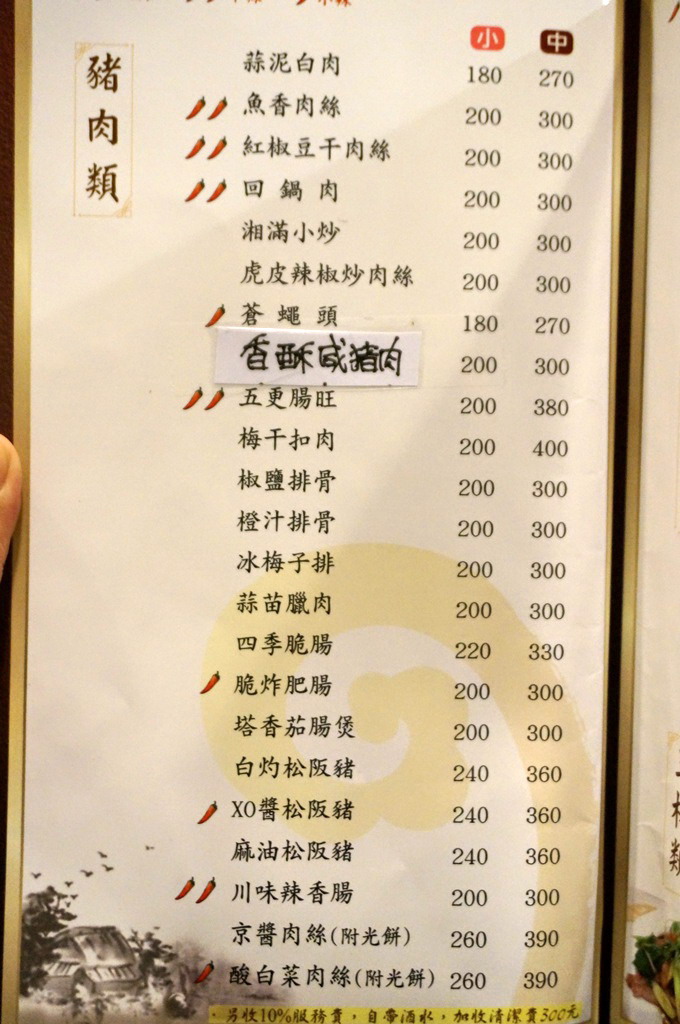 豬肉類
小 中
蒜泥白肉 180 270
魚香肉絲 200 300
紅椒豆干肉絲 200 300
回鍋肉 200 300
湘滿小炒 200 300
虎皮辣椒炒肉絲 200 300
蒼蠅頭 180 270
香酥咸豬肉 200 300
五更腸旺 200 380
梅干扣肉 200 400
椒鹽排骨 200 300
橙汁排骨 200 300
冰梅子排 200 300
蒜苗臘肉 200 300
四季脆腸 220 330
脆炸肥腸 200 300
塔香茄腸煲 200 300
白灼松阪豬 240 360
XO醬松阪豬 240 360
麻油松阪豬 240 360
川味辣香腸 200 300
京醬肉絲(附光餅) 260 390
酸白菜肉絲(附光餅) 260 390
·另收10%服務費，自帶酒水，加收清潔費300元